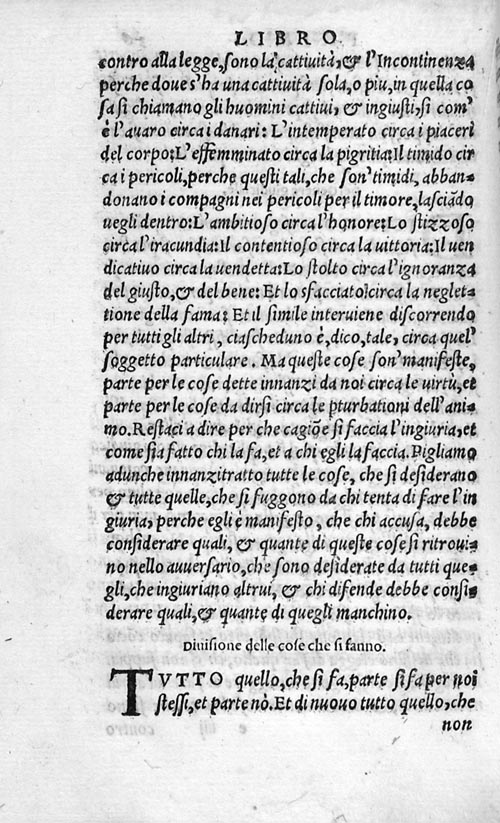 LIBRO
contro alla legge, sono la cattiuità, & l'Incontinenza
perche doue s'ha una cattiuità sola, o piu, in quella co
sa si chiamano gli huomini cattiui, & ingiusti, si com'
è l'auaro circa i danari: L'intemperato circa i piaceri
del corpo: L'effemminato circa la pigritia: Il timido cir
ca i pericoli, perche questi tali, che son' timidi, abban-
donano i compagni nei pericoli per il timore, lasciãdo
uegli dentro: L'ambitioso circa l'honore: Lo stizzoso
circa l'iracundia: Il contentioso circa la uittoria: Il uen
dicatiuo circa la uendetta: Lo stolto circa l'ignoranza
del giusto, & del bene: Et lo sfacciato circa la neglet-
tione della fama: Et il simile interuiene discorrendo
per tutti gli altri, ciascheduno è, dico, tale, circa quel'
soggetto particulare. Ma queste cose son' manifeste,
parte per le cose dette innanzi da noi circa le uirtù, et
parte per le cose da dirsi circa le pturbationi dell'ani-
mo. Restaci a dire per che cagiõe si faccia l'ingiuria, et
come sia fatto chi la fa, et a chi egli la faccia. Pigliamo
adunche innanzitratto tutte le cose, che si desiderano
& tutte quelle, che si fuggono da chi tenta di fare l'in
giuria, perche egli è manifesto, che chi accusa, debbe
considerare quali, & quante di queste cose si ritroui-
no nello auuersario, che sono desiderate da tutti que-
gli, che ingiuriano altrui, & chi difende debbe consi-
derare quali, & quante di quegli manchino.
Diuisione delle cose che si fanno.
TVTTO quello, che si fa, parte si fa per noi
stessi, et parte nò. Et di nuouo tutto quello, che
non